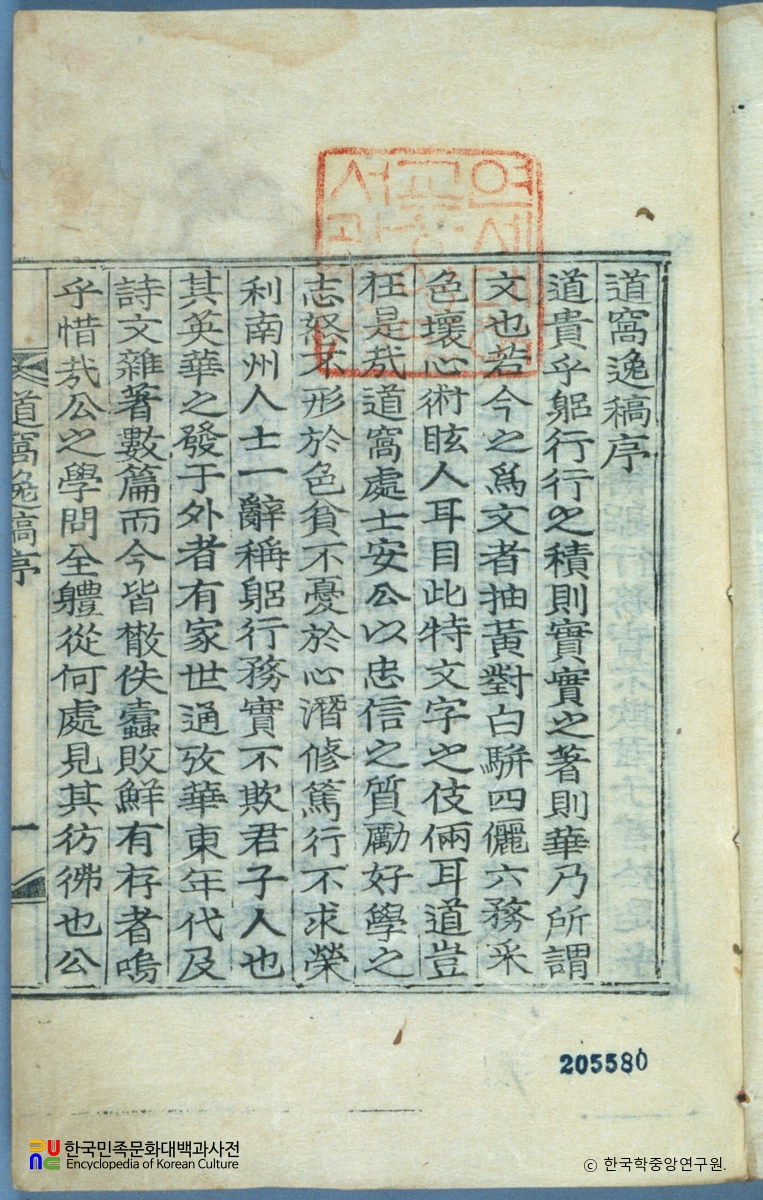 道窩逸稿序
道貴乎躳行行之積則實實之著則華乃所謂
文也若今之爲文者抽黃對白騈四儷六務采
色壞心術眩人耳目此特文字之伎倆耳道豈
在是哉道窩處士安公以忠信之質勵好學之
志怒不形於色貧不憂於心潛修篤行不求榮
利南州人士一辭稱躳行務實不欺君子人也
其英華之發于外者有家世通攷華東年代及
詩文雜著數篇而今皆散佚蠹敗鮮有存者嗚
乎惜哉公之學問全軆從何處見其彷彿也公
道窩逸稿序
一
연세대
서
205580
한국민족문화대백과사전
Encyclopedia of Korean Culture
© 한국학중앙연구원.